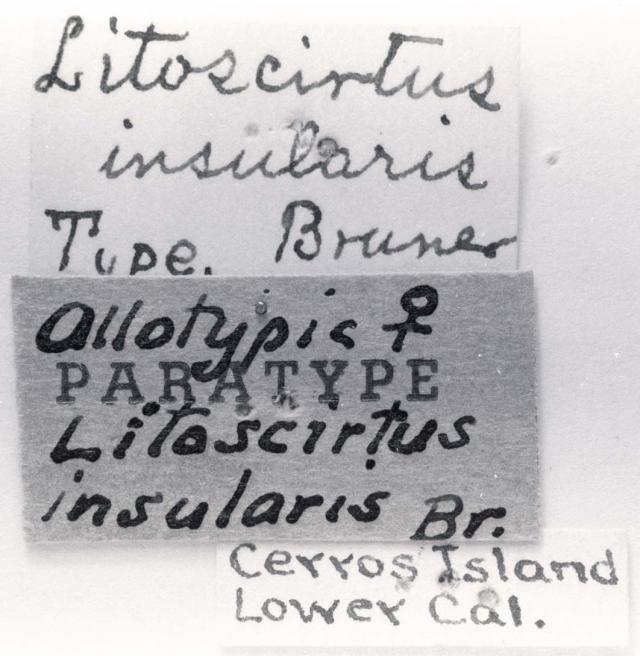 Litoscirtus
insularis
Type. Bruner
Allotypic ♀
PARATYPE
Litoscirtus
insularis Br.
Cerros Island
Lower Cal.